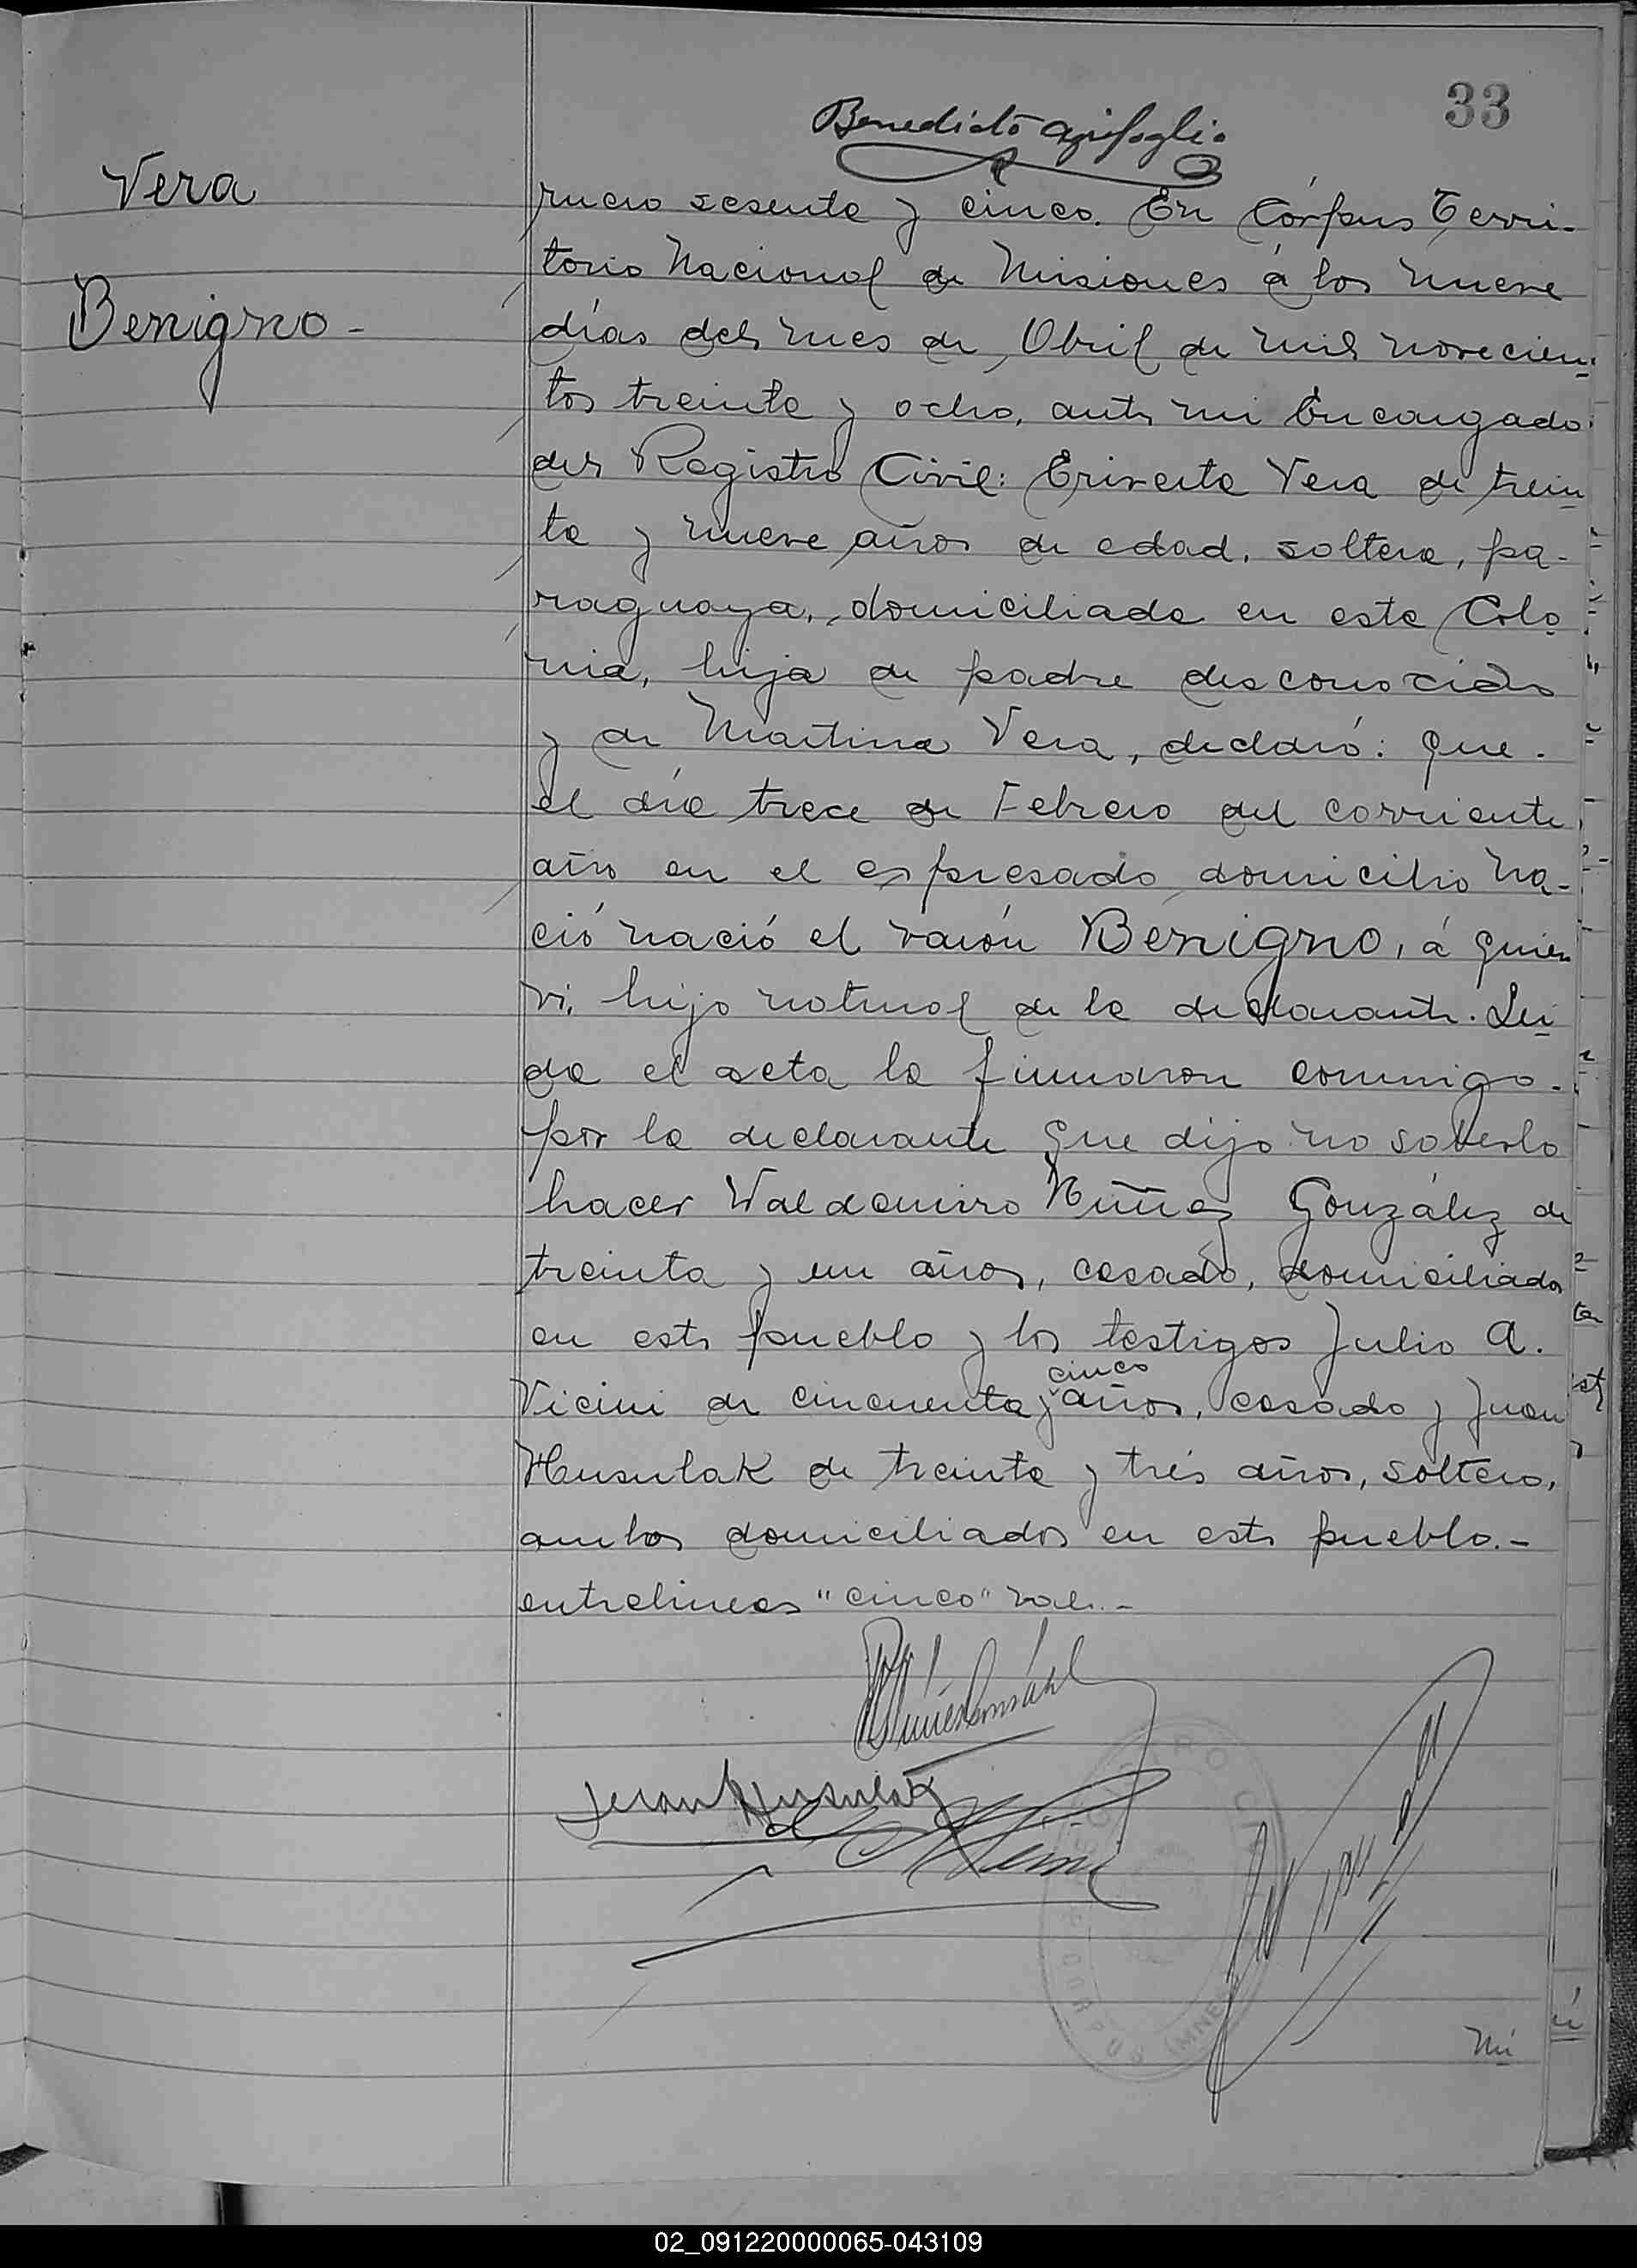 33
Benedicto Agrifoglio
Vera
Benigno -
mero sesenta y cinco. En Córpus Terri-
torio Nacional de Misiones á los nueve
días del mes de Abril de mil novecien-
tos treinta y ocho, ante mi Encargado
del Registro Civil: Eriverta Vera de trein
ta y nueve años de edad, soltera, pa-
raguaya, domiciliada en esta Colo
nia, hija de padre desconocido
y de Martina Vera, declaró: que.
el día trece de Febrero del corriente
año en el espresado domicilio na-
ció nació el varón Benigno, á quien
vi, hijo natural de la declarante. Lei
da el acta la firmaron conmigo.
por la declarante que dijo no saberlo
hacer Waldomiro Núñez González de
treinta y un años, casado, domiciliado
en este pueblo y los testigos Julio A.
cinco
Vicini de cincuenta y años, casado y Juan
Husulak de treinta y trés años, soltero,
ambos domiciliados en este pueblo.-
entrelineas "cinco" vale.-
Juan Husulak
REGISTRO CIVIL
CORPUS (MNES)
Nú
02_091220000065-043109